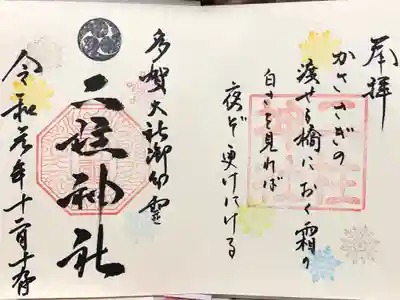 奉拝
かささぎの
渡せる橋に おく霜の
白きを見れば
夜ぞ更けにける
二柱神社
多賀大社御分霊
二柱神社
令和元年十二月